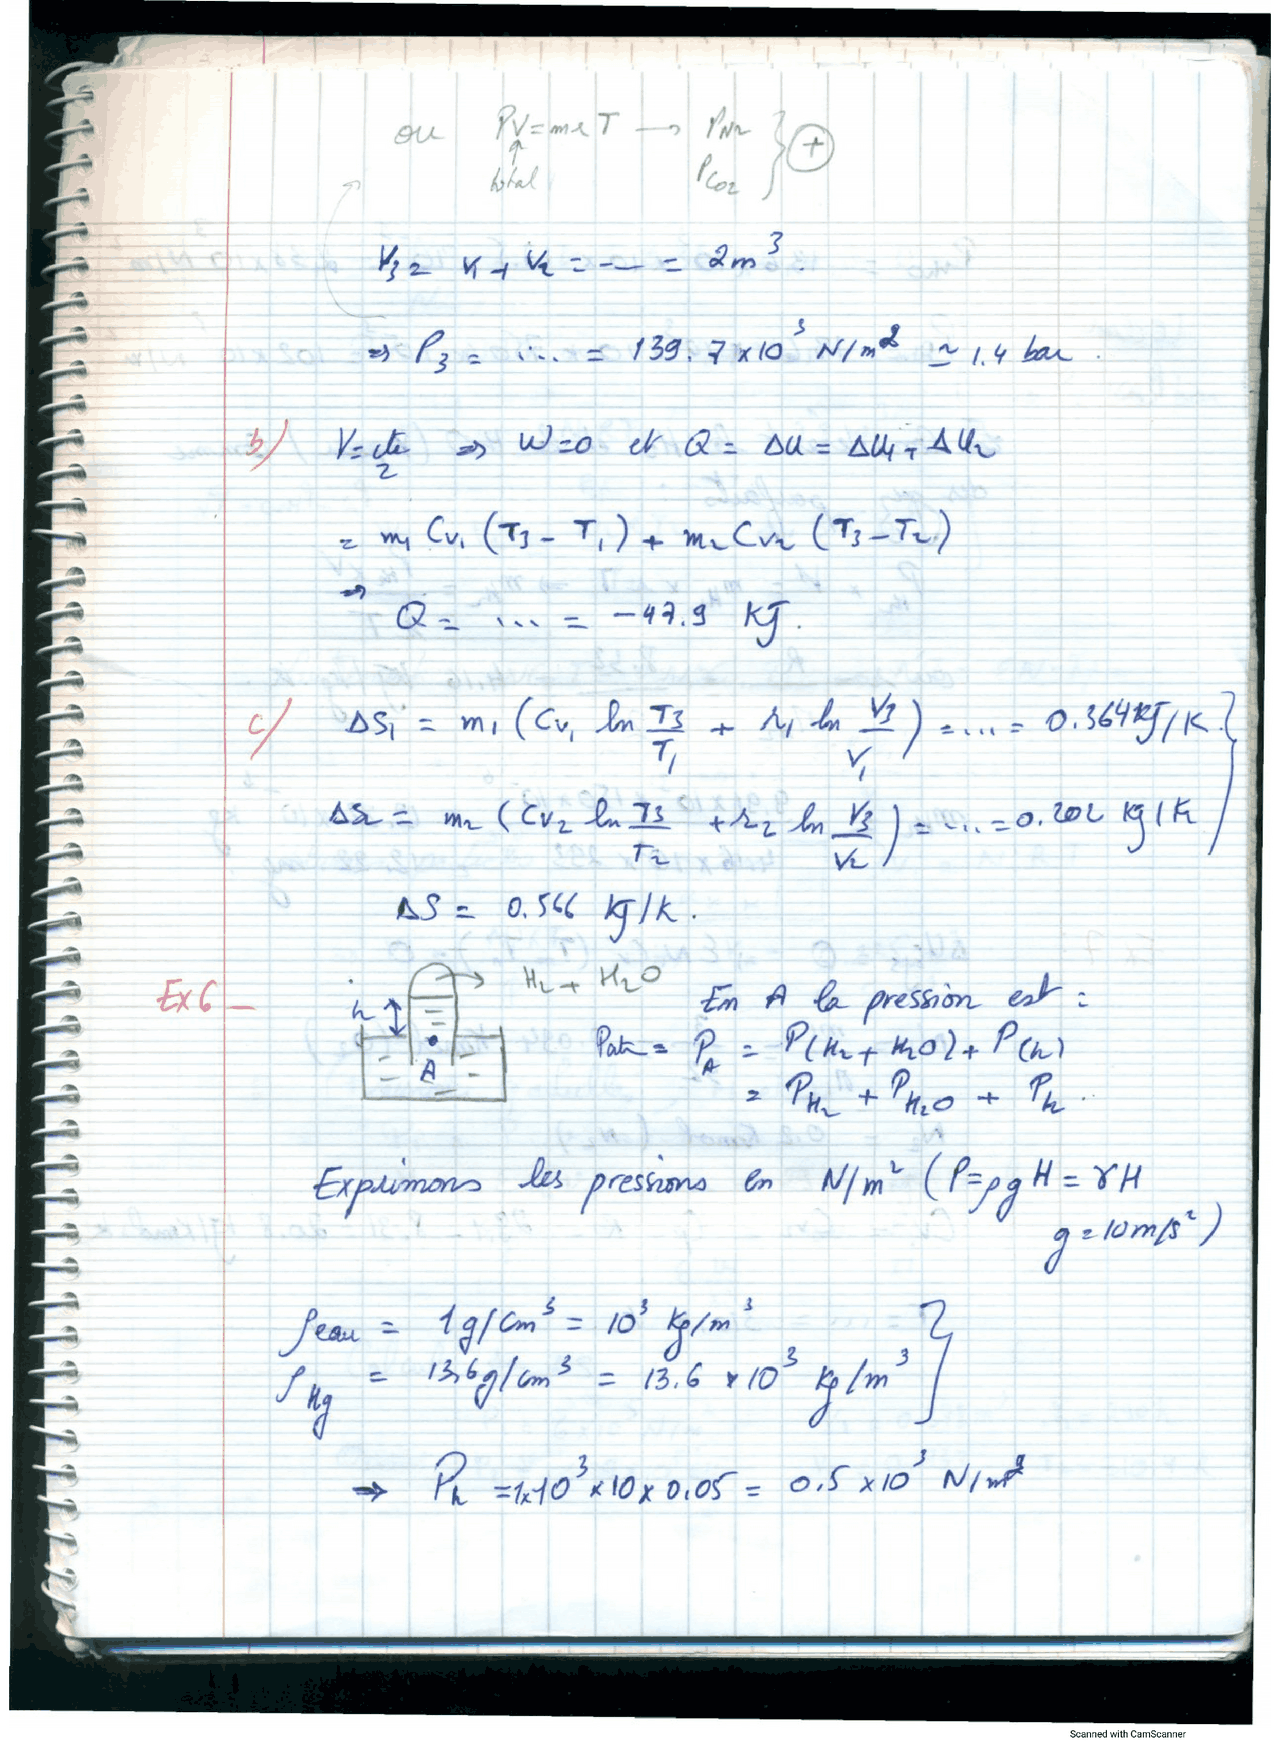 ou PV=mrT → PN2 } +
↑
total PCO2
V3 = V1 + V2 = --- = 2m³.
⇒ P3 = ... = 139.7x10³ N/m² ≃ 1.4 bar.
b) V=cte ⇒ W=0 et Q = ΔU = ΔU1 + ΔU2
2
= m1 Cv1 (T3 - T1) + m2 Cv2 (T3 - T2)
⇒
Q = ... = -47.9 KJ.
c) ΔS1 = m1 (Cv1 ln T3/T1 + r1 ln V3/V1) = ... = 0.364 KJ/K }
ΔS2 = m2 (Cv2 ln T3/T2 + r2 ln V3/V2) = ... = 0.202 Kj/K
ΔS = 0.566 Kj/K.
Ex 6 - h → H2 + H2O En A la pression est :
Patm = PA = P(H2 + H2O) + P(h)
A = PH2 + PH2O + Ph.
Exprimons les pressions en N/m² (P=ρgH = γH
g=10m/s²)
ρeau = 1g/cm³ = 10³ Kg/m³ }
ρHg = 13,6g/cm³ = 13.6 x10³ Kg/m³
→ Ph = 1x10³x10x0,05 = 0.5 x10³ N/m²
Scanned with CamScanner